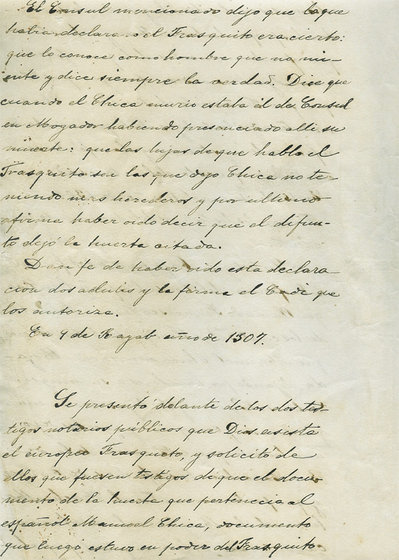 El Consul mencionado dijo que lo que
había declarado el Frasquito era cierto:
que lo conoce como hombre que no mi-
ente y dice siempre la verdad. Dice que
cuando el Chica murio estaba él de Consul
en Mogador habiendo presenciado alli su
muerte: que las hijas de que habla el
Frasquito son las que dejo Chica no te-
niendo mas herederos y por ultimo
afirma haber oido decir que el difun-
to dejó la huerta citada.
Dan fe de haber oido esta declara-
cion dos adules y la firma el Cadi que
los autoriza.
En 4 de Ragab año de 1307.
Se presentó delante de los dos tes-
tigos notarios públicos que Dios asista
el europeo Frasqueto, y solicitó de
ellos que fuesen testigos de que el docu-
mento de la huerta que pertenecia al
español Manuel Chica, documento
que luego estuvo en poder del Frasquito